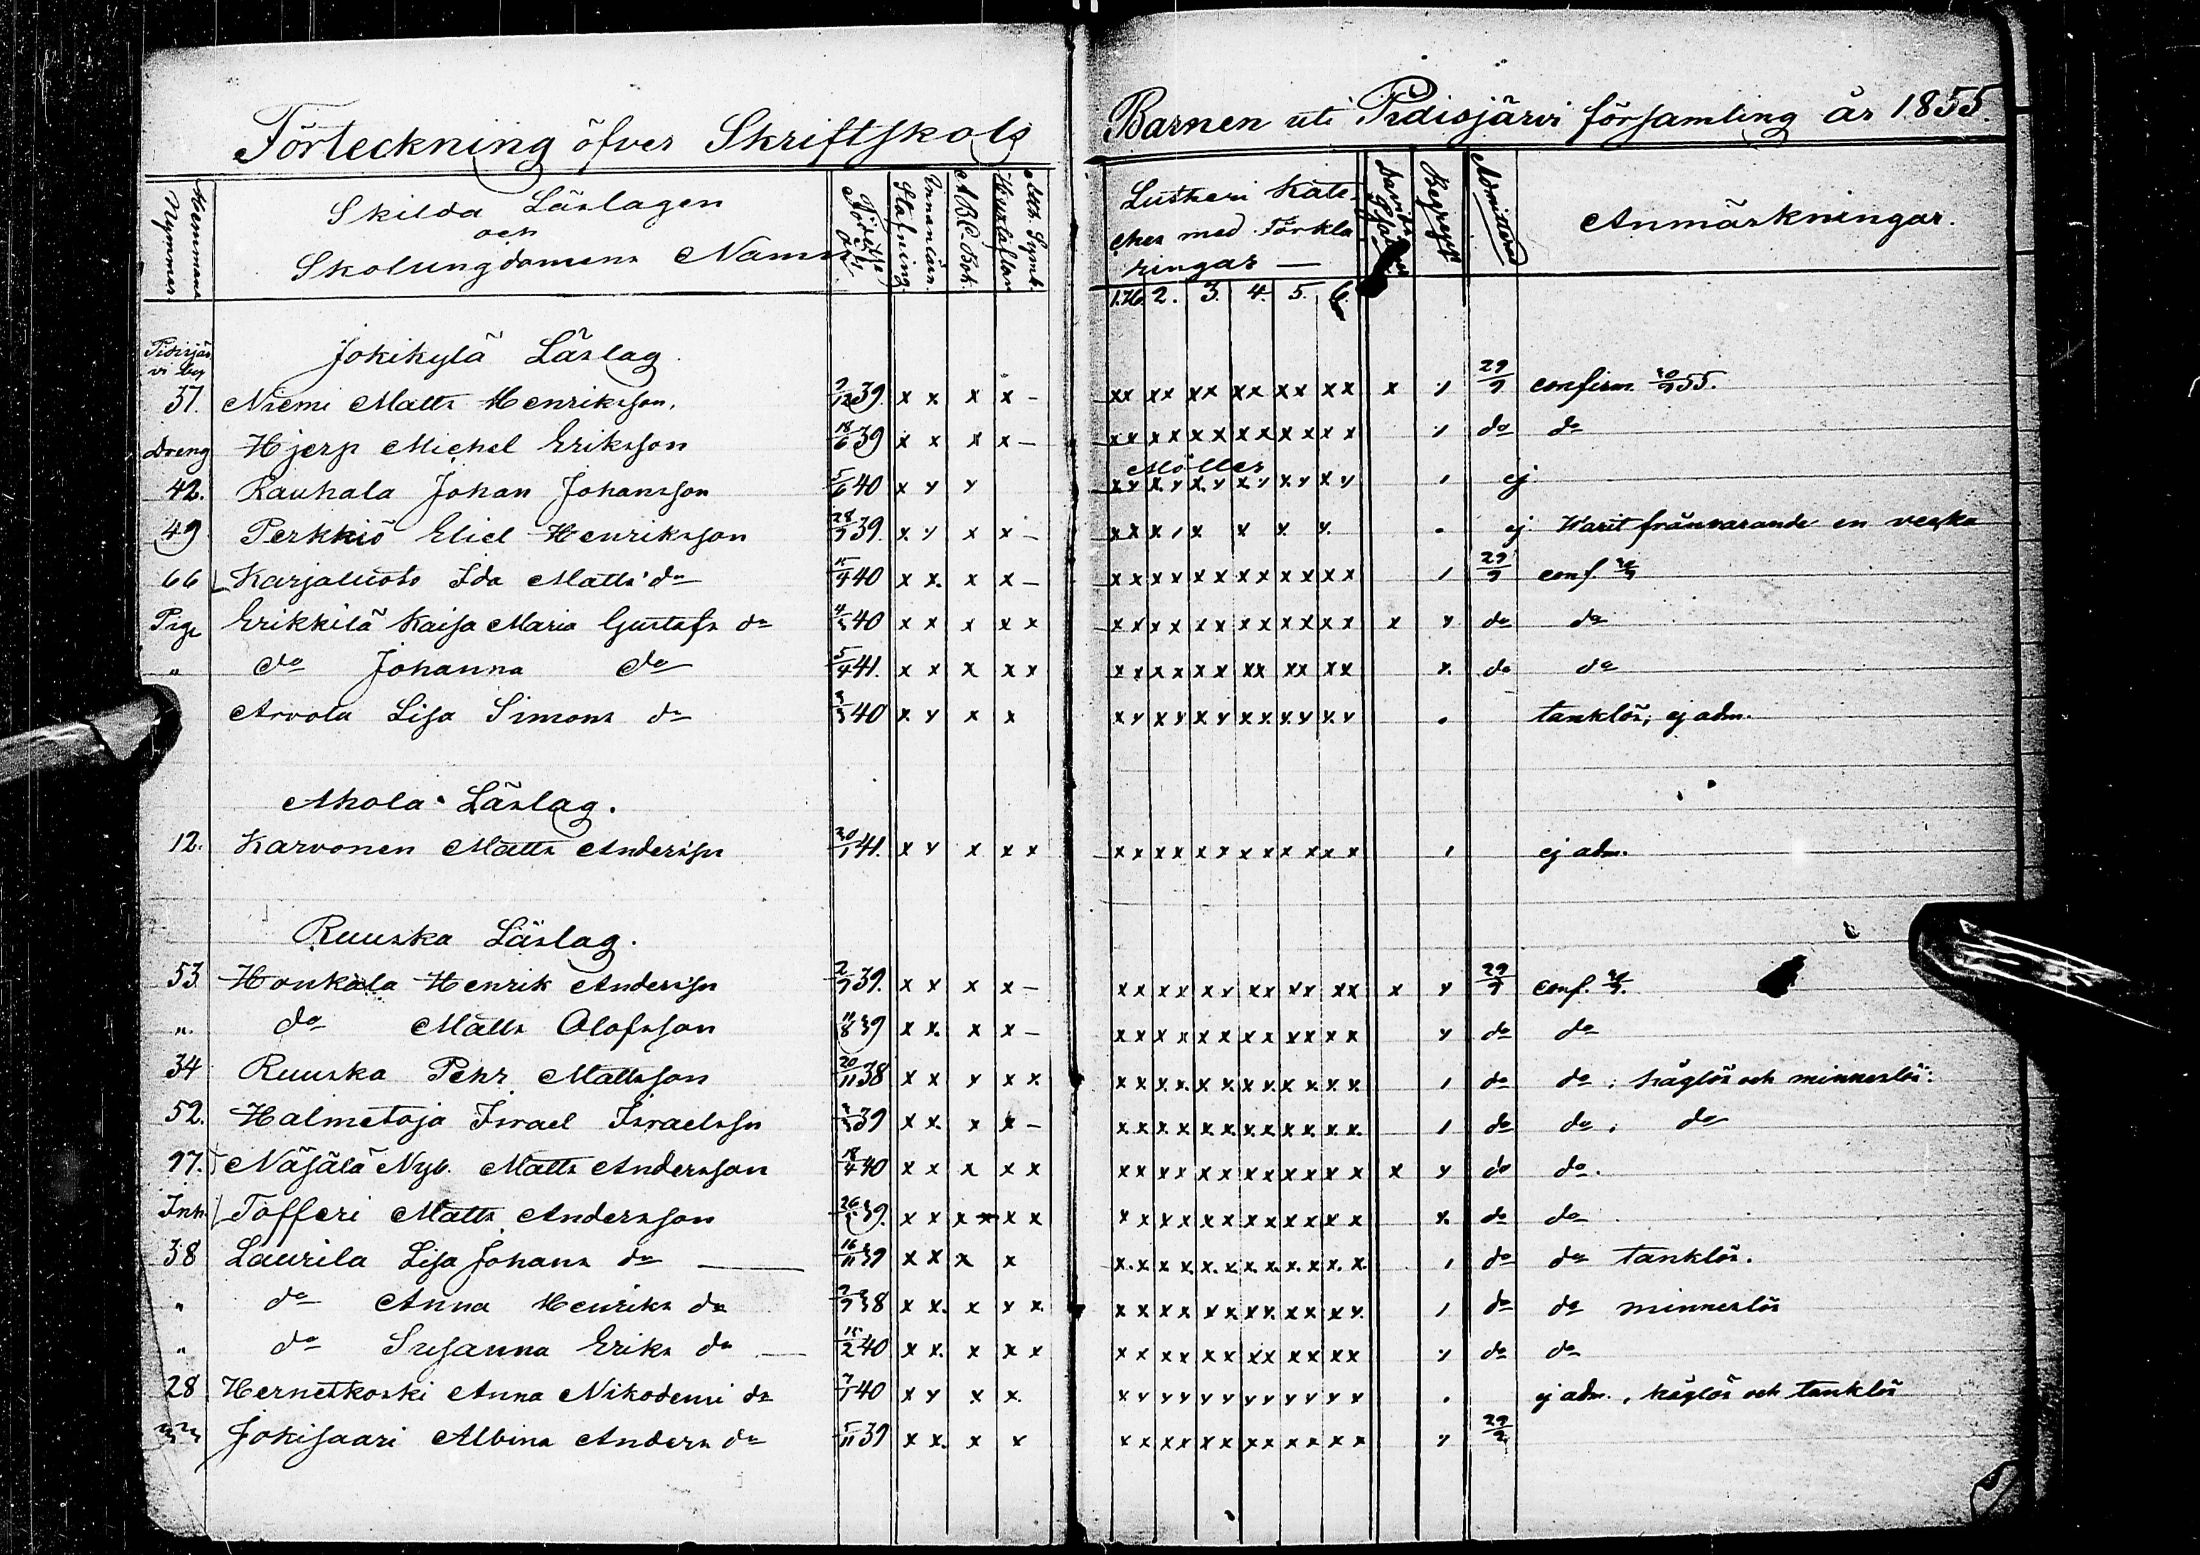 Förteckning öfver Skriftskols Barnen uti Pidisjärvi församling år 1855.
Hemmans Nummer
Skilda Läslagen
och
Skolungdomens Namn
Födelse år
Stafning
Innanläsn.
ABC-Bok.
Hustaflan
Ath. Symb.
Lutheri Kate
ches med Förkla
ringar —
1.H. 2. 3. 4. 5. 6.
Davids Psalmer
Begrepp
Admitterad
Anmärkningar.
Pidisjär
vi by
Jokikylä Läslag.
37. Niemi Matts Henriksson. 7/12 39. x x x x – xx xx xx xx xx xx x 29/9 confirm. 30/9 55.
Dreng Hjerp Michel Eriksson 18/6 39 x x x x – xx xx xx xx xx xx do do
Möller
42. Rauhala Johan Johansson 5/6 40 x y y xy xy xy xy xy xy ej
49 Perkkiö Eliel Henriksson 28/9 39. x y x x – ej Warit frånvarande en vecka
66 Karjaluoto Ida Matts dr 15/4 40 x x. x x – xx xx xx xx xx xx 29/9 conf. 30/9
Erikkilä Kaisa Maria Gustafs dr 4/5 40 x x x x x xx xx xx xx xx xx x y do do
" do Johanna do 5/4 41. x x x x x xx xx xx xx xx xx x. do do
Arvola Lisa Simons dr 40 x y x x xy xy xy xx xy xy tanklös, ej adm.
Ahola Läslag.
12. Karvonen Matts Andersson 30/1 41. x y x x x xx xx xx xx xx xx ej adm.
Ruuska Läslag.
53. Honkala Henrik Andersson 2/9 39. x y x x – xx xx xy xx yy xx x y 29/9 conf. 30/9.
" do Matts Olofsson 11/8 39 x x. x x – xx xx xx xx xx xx y do do
34 Ruuska Pehr Mattsson 20/11 38 x x y x x. xx xx xx xx xx xx do do ; håglös och minneslös.
52. Halmetoja Israel Israelsson 39 x x. x x – xx xx xx xx xx xx do do ; do
97. Näsälä Nyb. Matts Andersson 18/4 40 x x x x x xx xx xx xx xx xx x y do do.
Inh. Tofferi Matts Andersson 26/5 39. x x x x x xx xx xx xx xx xx x. do do
38 Laurila Lisa Johans dr — 16/11 39 x x x x xx xx xx xx xx xx do do tanklös.
" do Anna Henriks dr 7/9 38 x x. x y x. xx xx xx xx xx xy do do minneslös
" do Susanna Eriks dr — 15/2 40 x x. x x x xx xx xx xx xx xx y do do
28 Hernetkoski Anna Nikodemi dr 7/1 40 x y x x. xy yy yy yy yy yy ej adm., håglös och tanklös
Jokisaari Albina Anders dr 5/11 39 x x. x x xx xx xx xx xx xx y 29/9